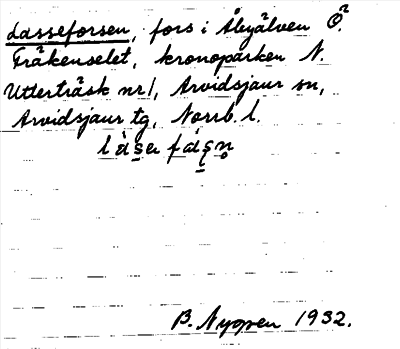 Lasseforsen, fors i Åbyälven Ö.
Fräkenselet, kronoparken N.
Utterträsk nr 1, Arvidsjaur sn,
Arvidsjaur tg, Norrb. l.
B. Nygren 1932.